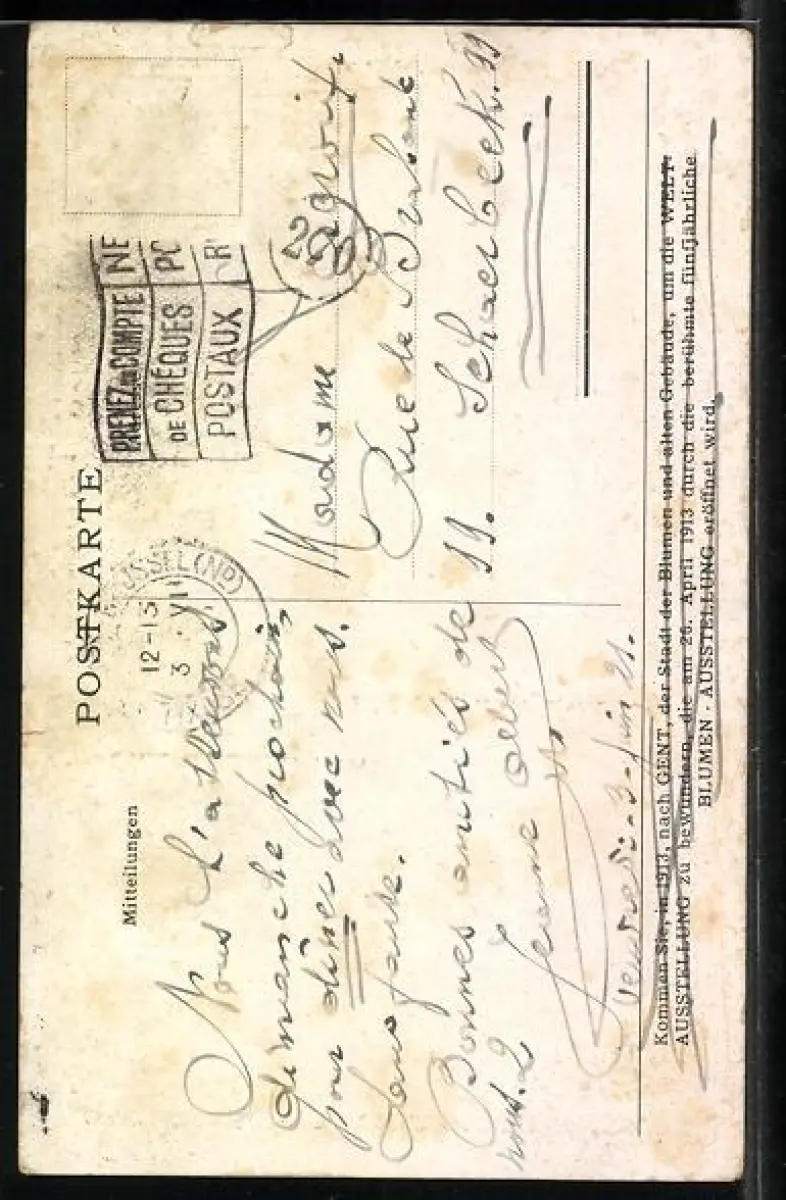 POSTKARTE
Mitteilungen
12-13
3 VI
(NP)
PRENEZ UN COMPTE
DE CHÈQUES
POSTAUX
NE
PO
R
Nous t'attendons,
dimanche prochain,
pour dîner avec nous.
Sans faute.
Bonnes amitiés de
nous 2
Jeanne Albert
Vendredi-3-Juin 21.
Madame
Rue de Brabant
11. Schaerbeek. 11
Kommen Sie, in 1913, nach GENT, der Stadt der Blumen und alten Gebäude, um die WELT-
AUSSTELLUNG zu bewundern, die am 26. April 1913 durch die berühmte fünfjährliche
BLUMEN - AUSSTELLUNG eröffnet wird.